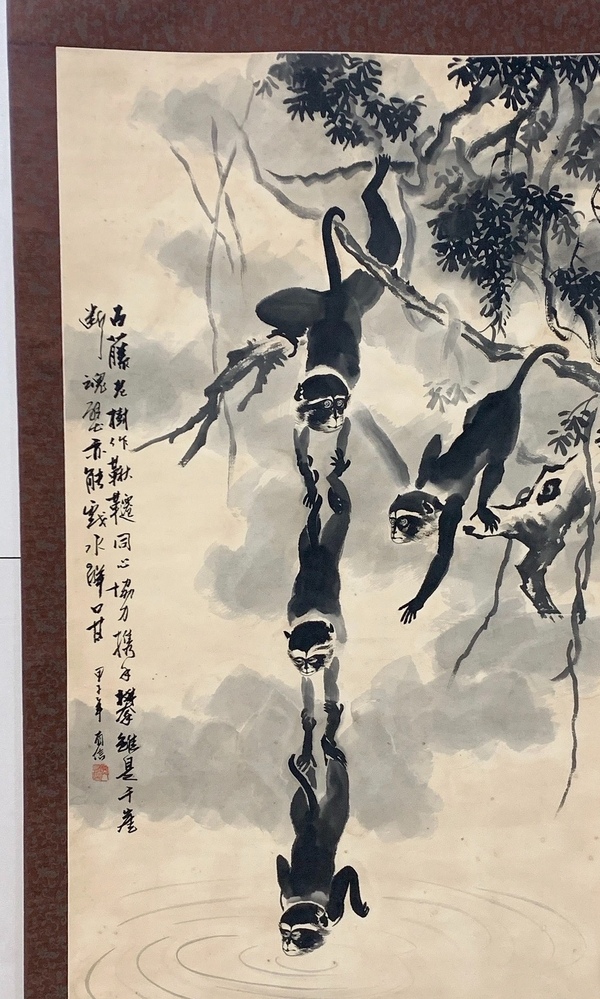 古藤老樹作鞦韆同心協力携手攀雖是千崖
斷魂壁亦能戲水解口甘
甲子年 有信